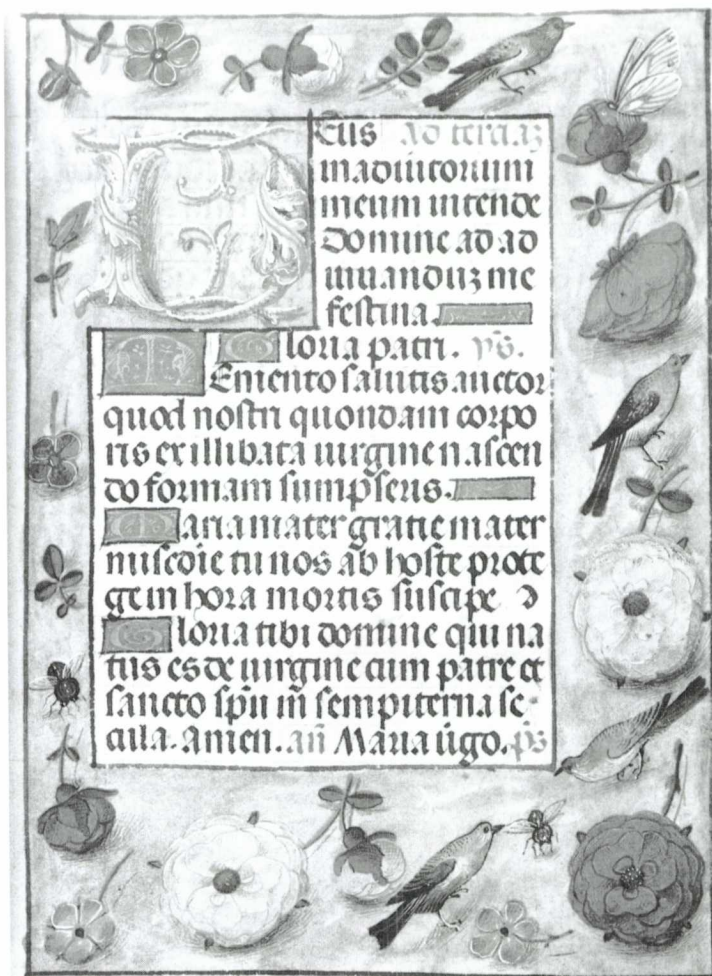 Deus ad terciaz
in adiutorium
meum intende
Domine ad ad
iuuanduz me
festina.
Gloria patri. ẏs.
Memento salutis auctor
quod nostri quondam corpo
ris ex illibata uirgine nascen
do formam sumpseris.
Maria mater gratie mater
misc̄die tu nos ab hoste prote
ge in hora mortis suscipe
Gloria tibi domine qui na
tus es de uirgine cum patre et
sancto spū in sempiterna se
cula. amen. an̄ Maria ūgo. p̄s